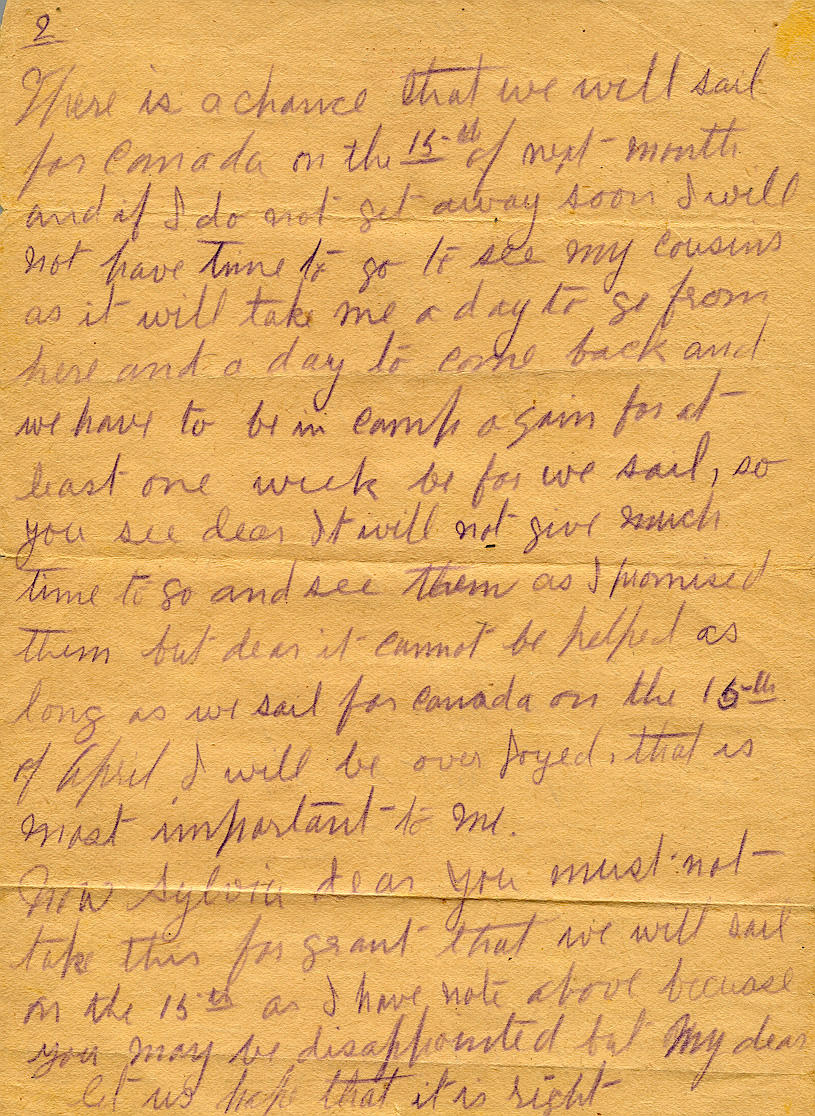 2
There is a chance that we will sail
for Canada on the 15-th of next month
and if I do not get away soon I will
not have time to go to see my cousins
as it will take me a day to go from
here and a day to come back and
we have to be in camp again for at
least one week be for we sail, so
you see dear It will not give much
time to go and see them as I promised
them but dear it cannot be helped as
long as we sail for Canada on the 15-th
of April I will be over Joyed, that is
most important to me.
Now Sylvia dear you must not
take this for grant that we will sail
on the 15th as I have note above because
you may be disappointed but My dear
let us hope that it is right